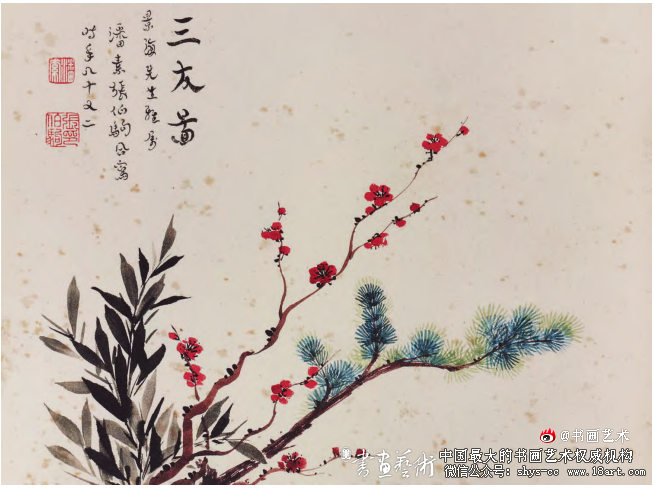 三友圖
景海先生雅属
潘素張伯駒合寫
时年八十又二
潘素
@书画艺术
書畫藝術
中国最大的书画艺术权威机构
微信公众号: shys-cc www.18art.com